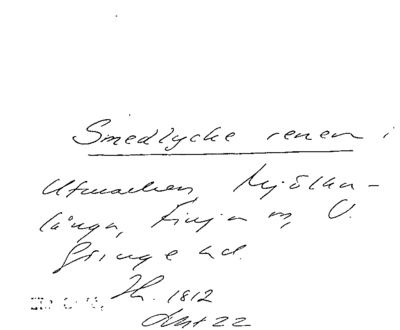 Smedlycke renen i
Utmarken, Mjölka-
långa, Finja sn, V.
Göinge hd.
Jh. 1812
Akt 22